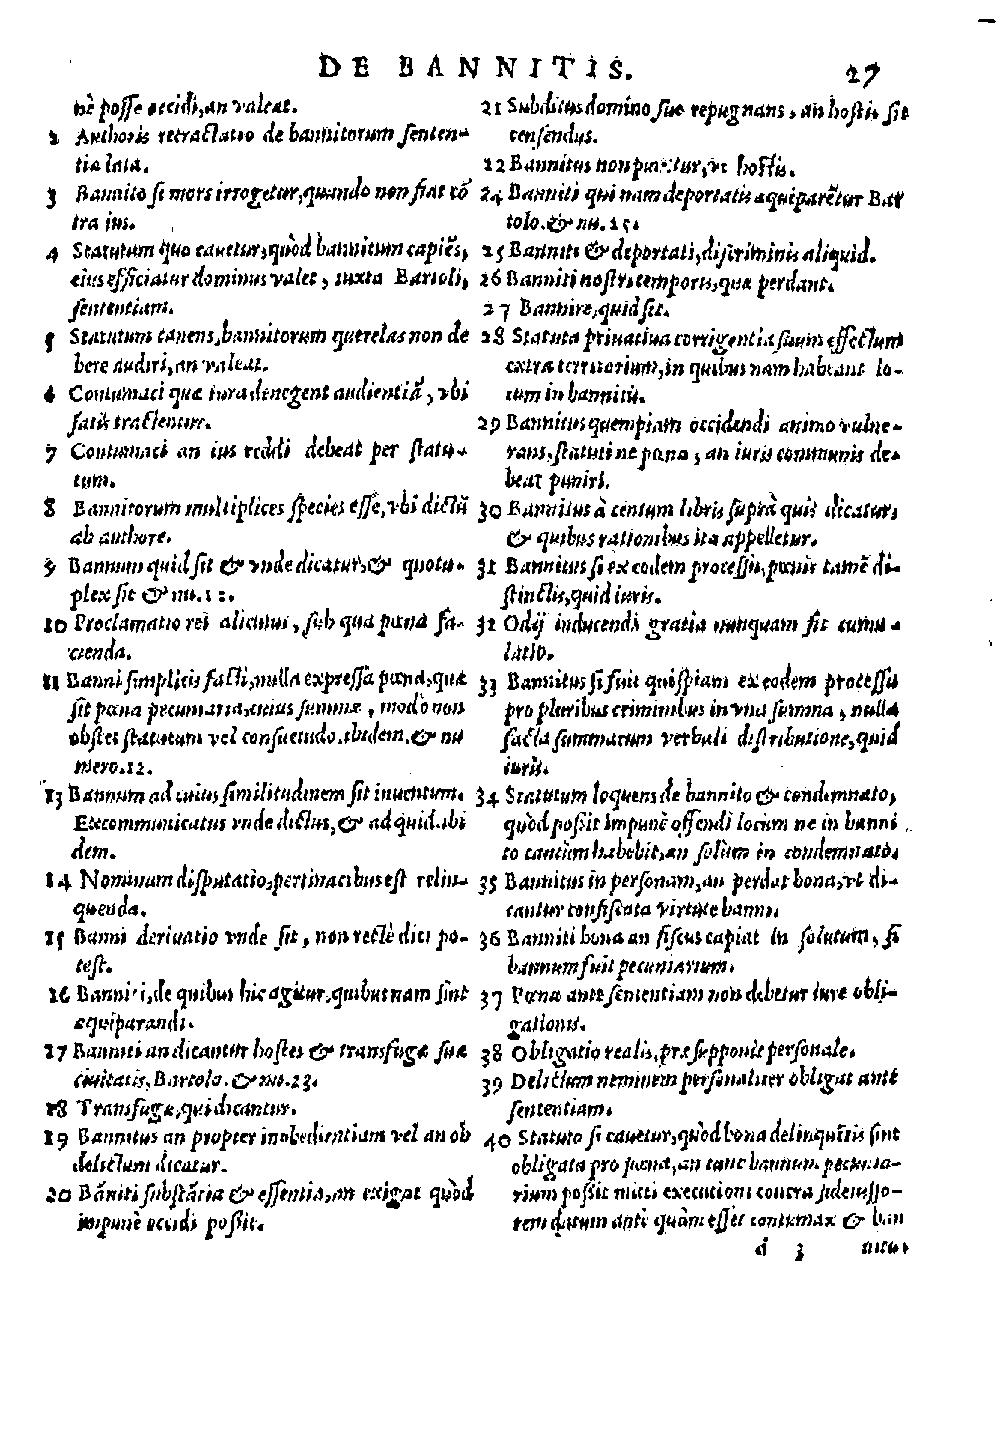 DE BANNITIS. 27
nè posse occidi, an valeat.
2 Authoris retractatio de bannitorum senten-
tia lata.
3 Bannito si mors irrogetur, quando non fiat cõ
tra ius.
4 Statutum quo cauetur, quòd bannitum capiẽs,
eius efficiatur dominus valet, iuxta Bartoli,
sententiam.
5 Statutum cauens, bannitorum querelas non de
bere audiri, an valeat.
6 Contumaci quæ iura denegent audientiã, vbi
satis tractentur.
7 Contumaci an ius reddi debeat per statu-
tum.
8 Bannitorum multiplices species esse, vbi dictũ
ab authore.
9 Bannum quid sit & vnde dicatur, & quotu-
plex sit & nu.
10 Proclamatio rei alicuius, sub qua pœna fa-
cienda.
11 Banni simplicis facti, nulla expressa pœna, quæ
sit pœna pecuniaria, cuius summæ, modò non
obstet statutum vel consuetudo. ibidem. & nu
mero. 12.
13 Bannum ad cuius similitudinem sit inuentum.
Excommunicatus vnde dictus, & ad quid. ibi
dem.
14 Nominum disputatio, pertinacibus est relin-
quenda.
15 Banni deriuatio vnde sit, non rectè dici po-
test.
16 Banniti, de quibus hic agitur, quibus nam sint
æquiparandi.
17 Banniti an dicantur hostes & transfugæ suæ
ciuitatis, Bartolo. & nu. 23.
18 Transfugæ, qui dicantur.
19 Bannitus an propter inobedientiam vel an ob
delictum dicatur.
20 Bãniti substãtia & essentia, an exigat quòd
impunè occidi possit.
21 Subditus domino suo repugnans, an hostis sit
censendus.
22 Bannitus non punitur, vt hostis.
24 Banniti qui nam deportatis æquiparẽtur Bar
tolo. & nu. 25.
25 Banniti & deportati, discriminis aliquid.
26 Banniti nostri temporis, quæ perdant.
27 Bannire, quid sit.
28 Statuta priuatiua corrigentia suum effectum
extra territorium, in quibus nam habeant lo-
cum in bannitis.
29 Bannitus quempiam occidendi animo vulne-
rans, statuti ne pœna, an iuris communis de-
beat puniri.
30 Bannitus à centum libris suprà quis dicatur,
& quibus rationibus ita appelletur.
31 Bannitus si ex eodem processu, pœnis tamẽ di-
stinctis, quid iuris.
32 Odij inducendi gratia nunquam sit cumu-
latio.
33 Bannitus si fuit quispiam ex eodem processu
pro pluribus criminibus in vna summa, nulla
facta summarum verbuli distributione, quid
iuris.
34 Statutum loquens de bannito & condemnato,
quòd possit impunè offendi locum ne in banni
to cantùm habebit, an solùm in condemnato.
35 Bannitus in personam, an perdat bona, vt di-
cantur confiscata virtute banni.
36 Banniti bona an fiscus capiat in solutum, si
bannum fuit pecuniarium.
37 Pœna ante sententiam non debetur iure obli-
gationis.
38 Obligatio realis, præsupponit personalē.
39 Delictum neminem personaliter obligat antè
sententiam.
40 Statuto si cauetur, quòd bona delinquẽtis sint
obligata pro pœna, an tunc bannum pecunia-
rium possit mitti executioni contra fideiusso-
rem datum antè quàm esset contumax & ban
d 3 nitus